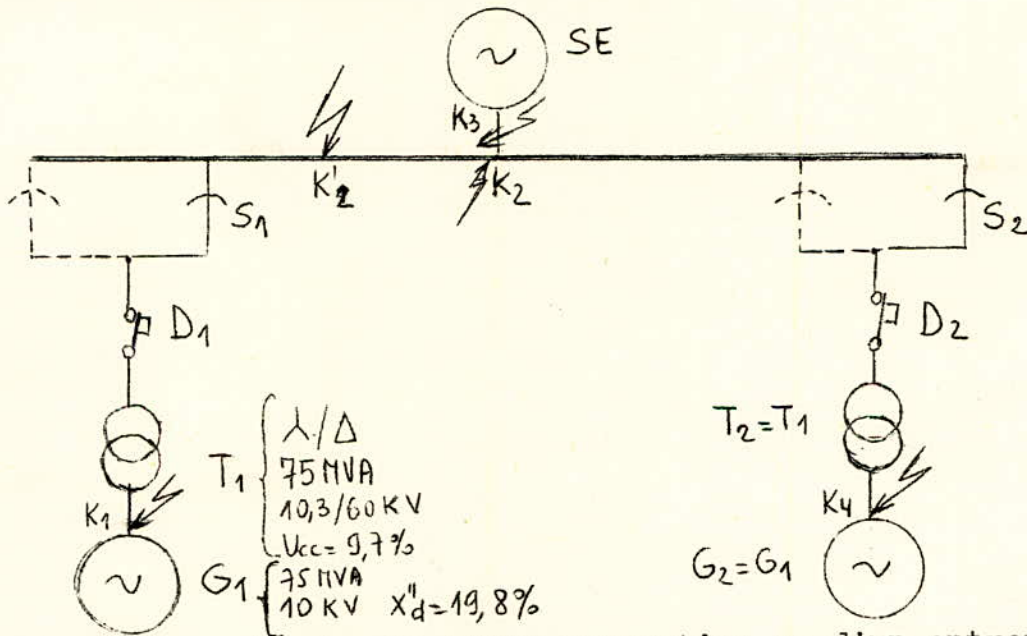 ~ SE
K3
K'2 K2
S1 S2
D1 D2
T1 { ⅄/Δ
75 MVA
10,3/60 KV
Ucc= 9,7%
T2=T1
K1 K4
~ G1 { 75 MVA
10 KV X"d=19,8%
G2=G1 ~